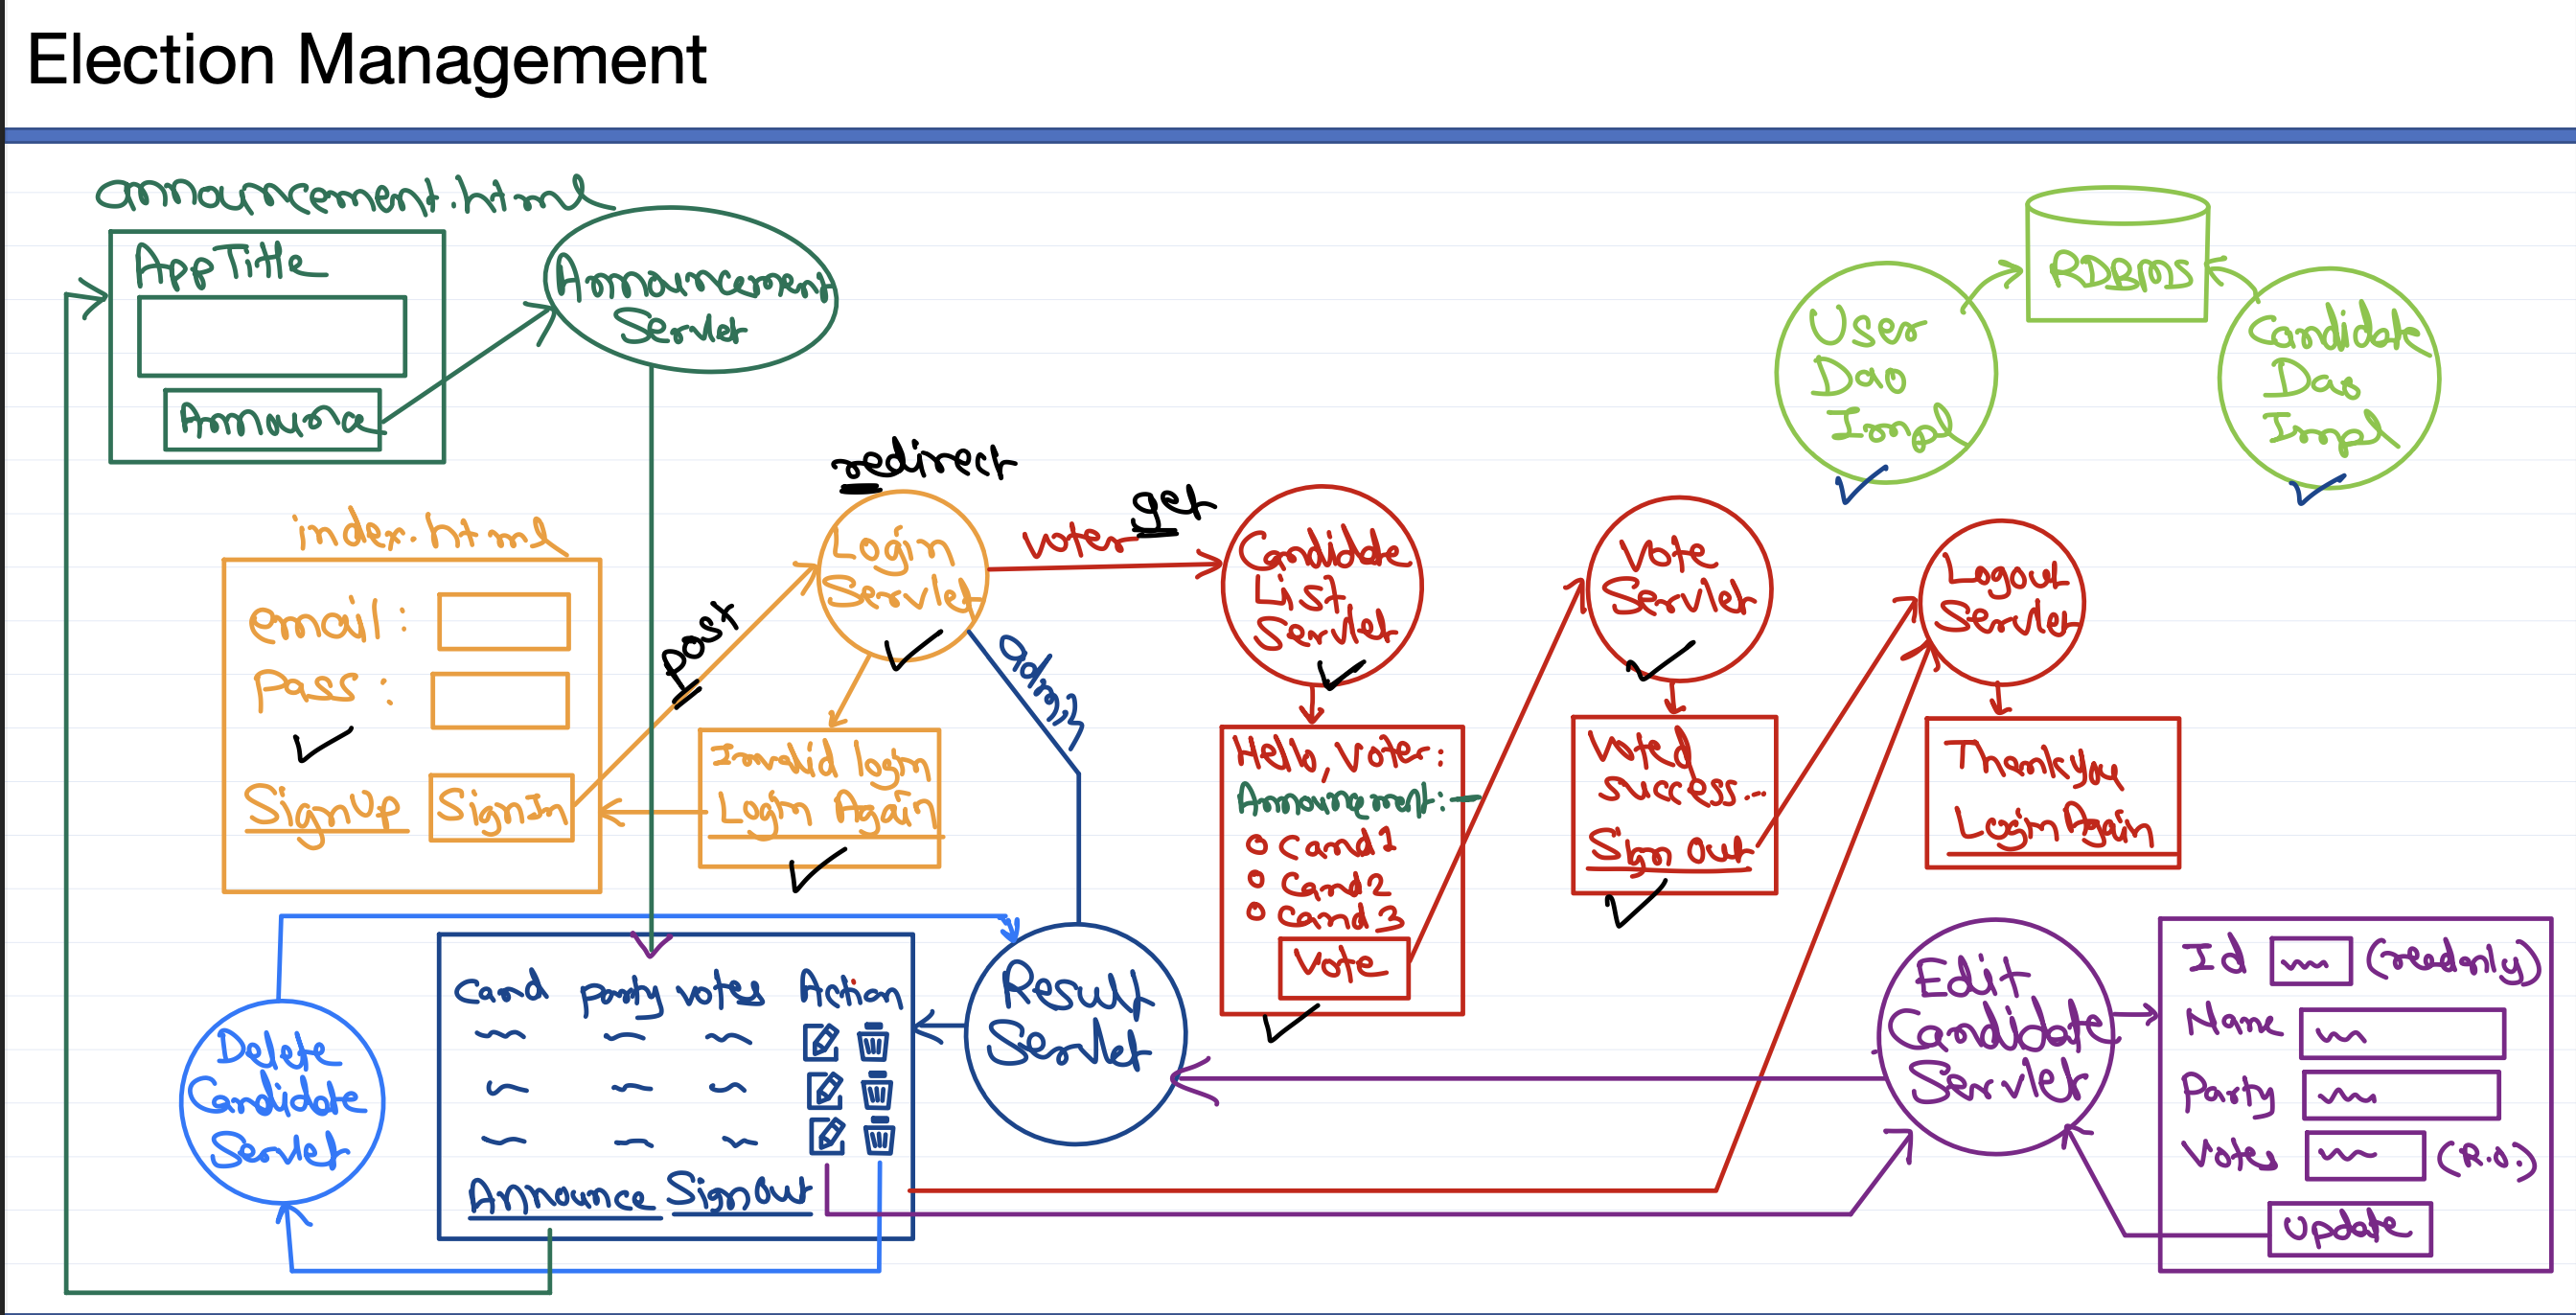 Election Management
announcement.html
App Title
Announce
Announcement
Servlet
RDBMS
User
Dao
Impl
Candidate
Dao
Impl
index.html
email:
Pass:
SignUp
SignIn
post
redirect
Login
Servlet
Invalid login
Login Again
voter
get
admin
Candidate
List
Servlet
Hello, Voter:
Announcement:-
Cand1
Cand2
Cand3
Vote
Vote
Servlet
Voted
success...
Sign Out
Logout
Servlet
Thankyou
Login Again
Delete
Candidate
Servlet
Cand party votes Action
Announce SignOut
Result
Servlet
Edit
Candidate
Servlet
Id (readonly)
Name
Party
Votes (R.O.)
update